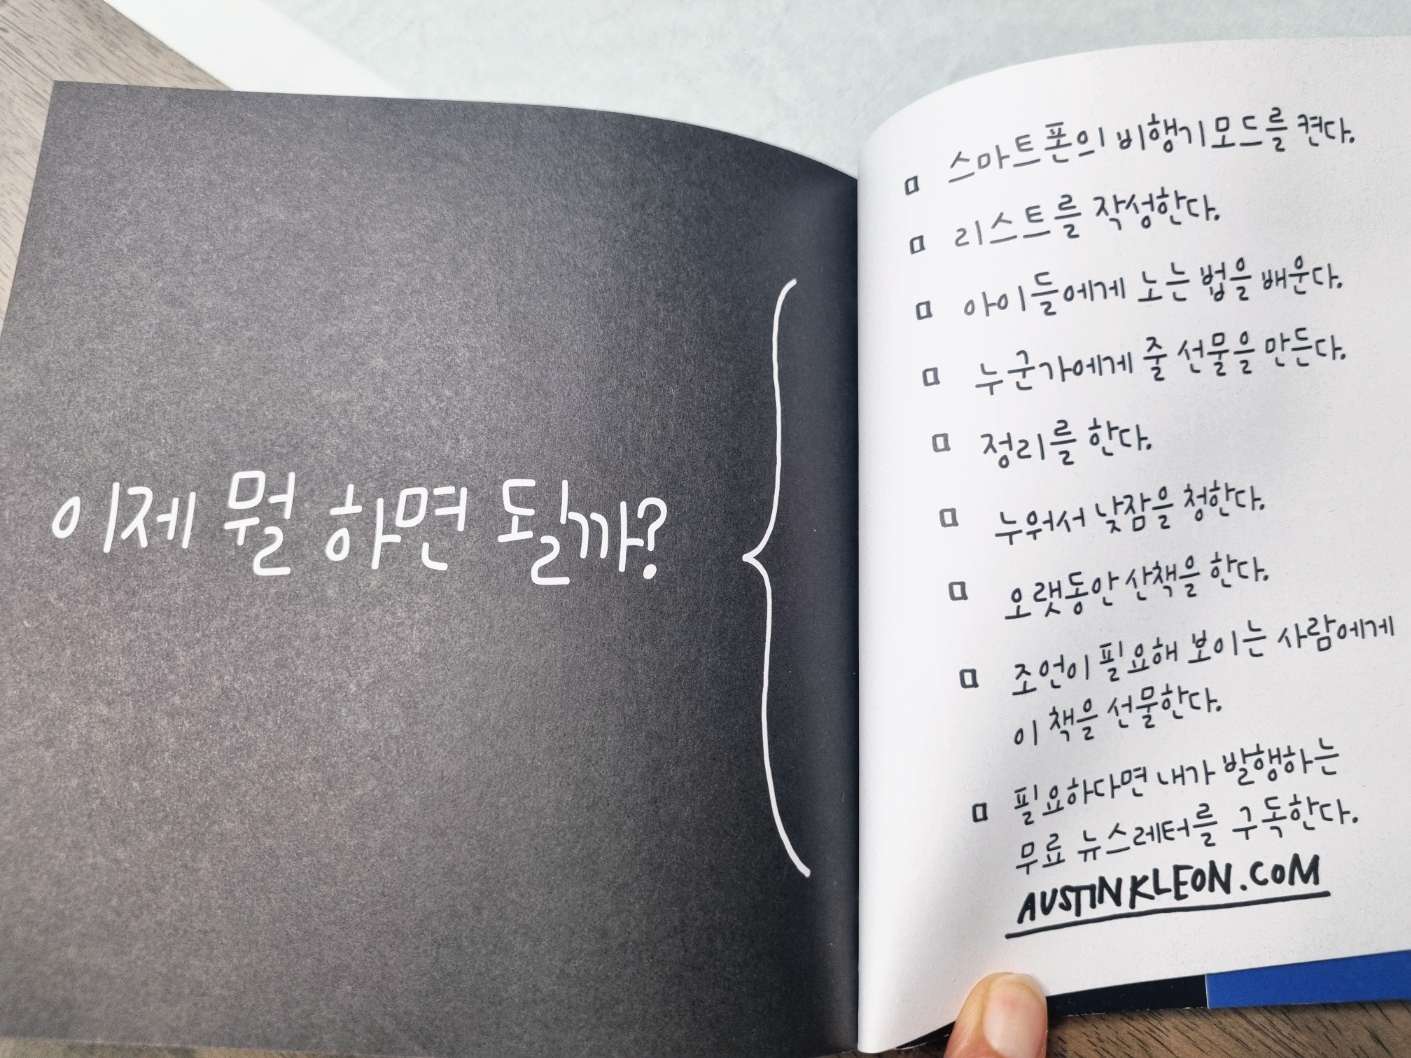 이제 뭘 하면 될까?
스마트폰의 비행기모드를 켠다.
리스트를 작성한다.
아이들에게 노는 법을 배운다.
누군가에게 줄 선물을 만든다.
정리를 한다.
누워서 낮잠을 청한다.
오랫동안 산책을 한다.
조언이 필요해 보이는 사람에게
이 책을 선물한다.
필요하다면 내가 발행하는
무료 뉴스레터를 구독한다.
AUSTINKLEON.COM